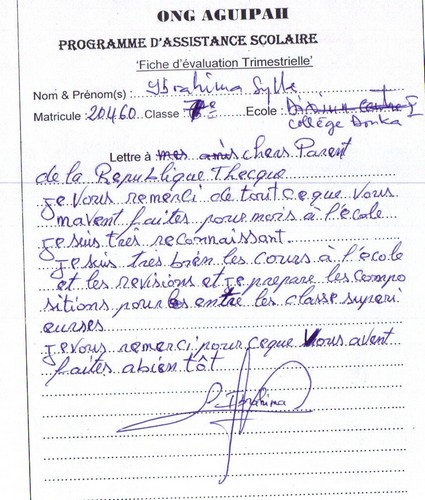 ONG AGUIPAH
PROGRAMME D'ASSISTANCE SCOLAIRE
'Fiche d'évaluation Trimestrielle'
Nom & Prénom(s) : Ibrahima Sylla
Matricule : 20460 Classe : 7e Ecole : Dixinn centre I
collège Donka
Lettre à mes amis chers Parent
de la Republique Thecque
je vous remerci de tout ceque vous
mavent faites pour mois à l'école
je suis très reconnaissant.
je suis très bien les cours à l'école
et les revisions et je prepare les compo
sitions pour les entre les classe superi
eurses
je vous remerci pour ceque Vous avent
faites abien tôt
Ibrahima